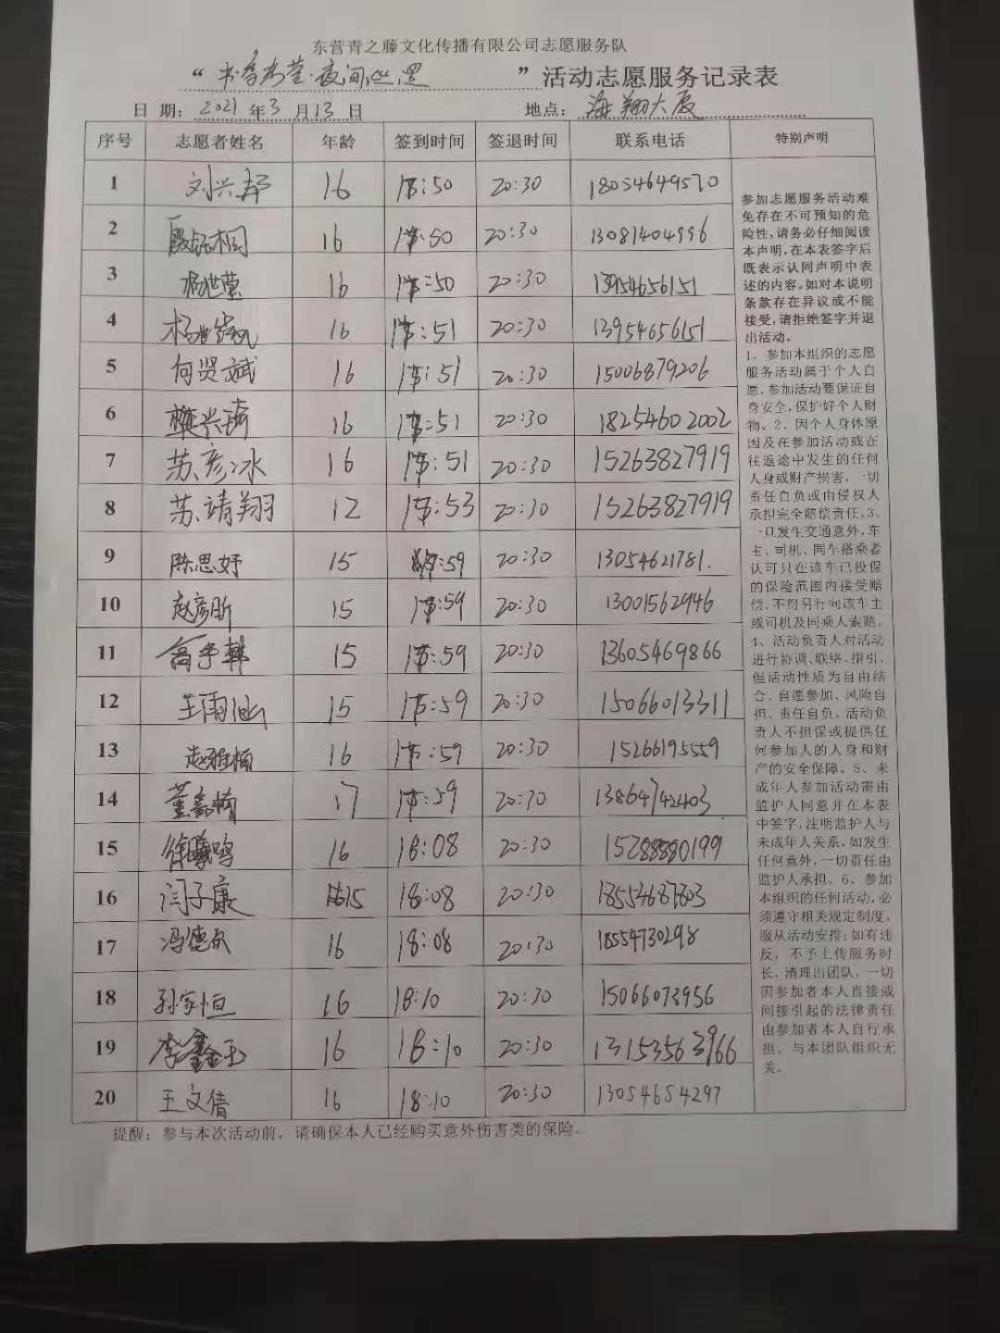 东营青之藤文化传播有限公司志愿服务队
“书香东营·夜间巡逻”活动志愿服务记录表
日 期：2021 年 3 月 13 日 地点：海翔大厦
序号 志愿者姓名 年龄 签到时间 签退时间 联系电话 特别声明
1 刘兴 16 :50 20:30 18054649570
2 16 :50 20:30 13081404996
3 16 :50 20:30 13954656151
4 16 :51 20:30 13954656151
5 何贤斌 16 :51 20:30 15006879206
6 16 :51 20:30 18254602002
7 苏彦冰 16 :51 20:30 15263827919
8 苏靖翔 12 :53 20:30 15263827919
9 陈思妤 15 :59 20:30 13054621781.
10 赵彦昕 15 :59 20:30 13001562946
11 15 :59 20:30 13605469866
12 王雨 15 :59 20:30 15066013311
13 赵雅楠 16 :59 20:30 15266195559
14 董鑫楠 17 :59 20:30 13864742403
15 徐 鸣 16 18:08 20:30
16 闫子康 15 18:08 20:30
17 冯德 16 18:08 20:30 18554730298
18 孙家恒 16 18:10 20:30 15066073956
19 李鑫玉 16 18:10 20:30 13153563966
20 王文倩 16 18:10 20:30 13054654297
参加志愿服务活动难
免存在不可预知的危
险性，请务必仔细阅读
本声明，在本表签字后
既表示认同声明中表
述的内容。如对本说明
条款存在异议或不能
接受，请拒绝签字并退
出活动。
1、参加本组织的志愿
服务活动属于个人自
愿，参加活动要保证自
身安全，保护好个人财
物。2、因个人身体原
因及在参加活动或在
往返途中发生的任何
人身或财产损害，一切
责任自负或由侵权人
承担完全赔偿责任。3、
一旦发生交通意外，车
主、司机、同车搭乘者
认可只在该车已投保
的保险范围内接受赔
偿，不得另行向该车主
或司机及同乘人索赔。
4、活动负责人对活动
进行协调、联络、指引，
但活动性质为自由结
合、自愿参加、风险自
担、责任自负。活动负
责人不担保或提供任
何参加人的人身和财
产的安全保障。5、未
成年人参加活动需由
监护人同意并在本表
中签字，注明监护人与
未成年人关系，如发生
任何意外，一切责任由
监护人承担。6、参加
本组织的任何活动，必
须遵守相关规定制度，
服从活动安排；如有违
反，不予上传服务时
长，清理出团队。一切
因参加者本人直接或
间接引起的法律责任
由参加者本人自行承
担，与本团队组织无
关。
提醒：参与本次活动前，请确保本人已经购买意外伤害类的保险。